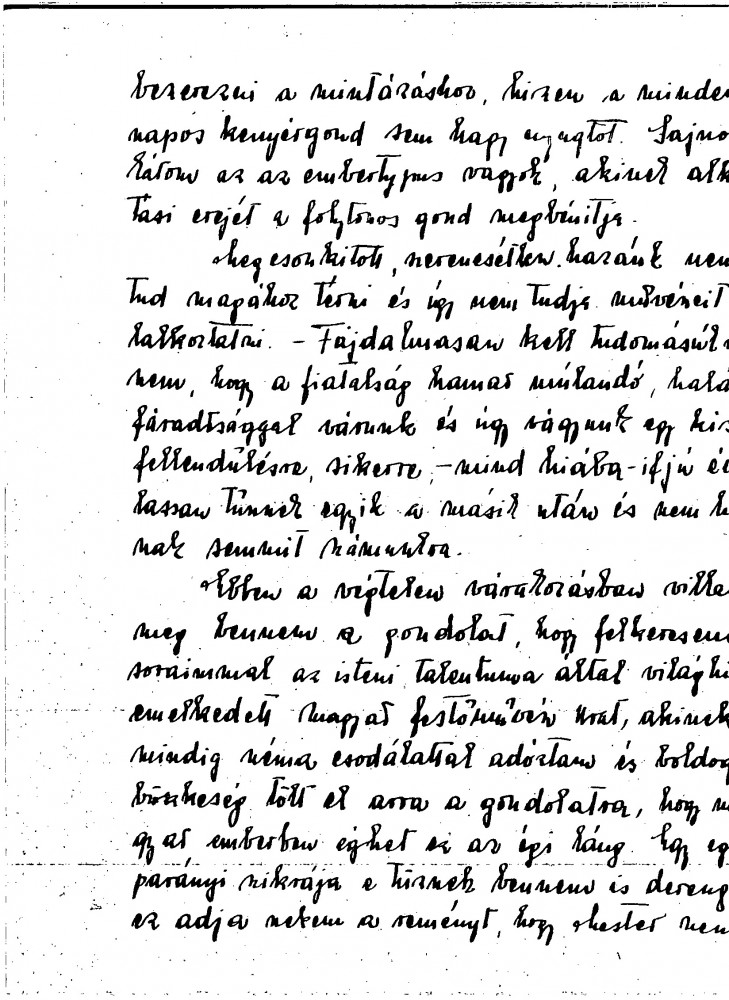 beszerezni a mintázáshoz, hiszen a minden
napos kenyérgond sem hagy nyugtot. Sajno
látom az az embertypus vagyok, akinek alk
tási erejét a folytonos gond megbénitja.
Megcsonkitott, szerencsétlen hazánk nem
tud magához térni és igy nem tudja művészeit
lalkoztatni. - Fájdalmasan kell tudomásúl
nem, hogy a fiatalság hamar múlandó, halá
fáradtsággal várunk és úgy vágyunk egy kis
fellendűlésre, sikerre, - mind hiába - ifjú é
lassan tűnnek egyik a másik után és nem h
nak semmit számunkra.
Ebben a végtelen várakozásban villa
meg bennem a gondolat, hogy felkeresem
soraimmal az isteni talentuma által világhi
emelkedett magyar festőművész Urat, akinek
mindig néma csodálattal adóztam és boldog
büszkeség tölt el arra a gondolatra, hogy m
gyar emberben éghet ez az égi láng. Egy eg
parányi szikrája e tűznek bennem is dereng
ez adja nekem a reményt, hogy Mester nem